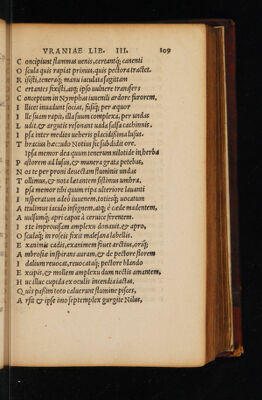 VRANIAE LIB. III. 109
C oncipiunt flammas uenis, certantq́; canenti
O scula quis rapiat primus, quis pectora tractet.
R isisti, teneraq́; manu iaculata sagittam
C ertantes fixisti, atq; ipso uulnere transfers
C onceptum in Nymphas iuuenili ardore furorem,
I llicet inuadunt socias, fusisq́; per æquor
I lle suam rapit, illa suum complexa, per undas
L udit, & argutis resonant uada salsa cachinnis.
I psa inter medios ueheris placidissima lusus.
T hracius hæc udo Notius sic subdidit ore.
I psa memor dea quum tenerum nilotide in herba
P astorem ad lusus, & munera grata petebas,
N os te per proni deuectam fluminis undas
T ollimus, & nota lætantem sistimus umbra.
I psa memor tibi quum ripa ulteriore lauanti
I nsperatum adeò iuuenem, totiesq́; uocatum
A ttulimus iaculo insignem, atq; è cæde madentem,
A uulsumq́; apri capox à ceruice frementem.
I ste improuisam amplexu donauit, & apro,
O sculaq́; in roseis fixit malesana labellis.
E xanimis cadis, exanimem fluet arctius, orisq́;
A mbrosiæ inspirans auram, & de pectore florem
I dalium reuocat, reuocatq́; pectore blando
E xcipis, & mollem amplexu dum nectis amantem,
H uc illuc cupida ex oculis incendia iactas.
Q uis passim toto caluerunt flumine pisces,
A rsit & ipse imo septemplex gurgite Nilus,